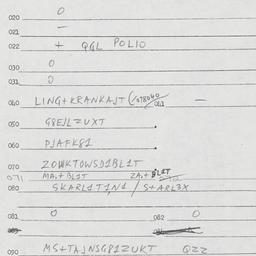 020 0
021 –
022 + QGL POLIO
030 0
031 0
040 LING+KRANKAJT 041 –
050 G8EJLZUXT.
060 PJAFK81.
070 ZOWKTOWSD1BL1T
071 MA.+BL1T ZA.+BL1T
080 SKARL1T1N1 / S+ARLEX
081 0 082 0
090 MS+TAJNSG81ZUKT QZZ